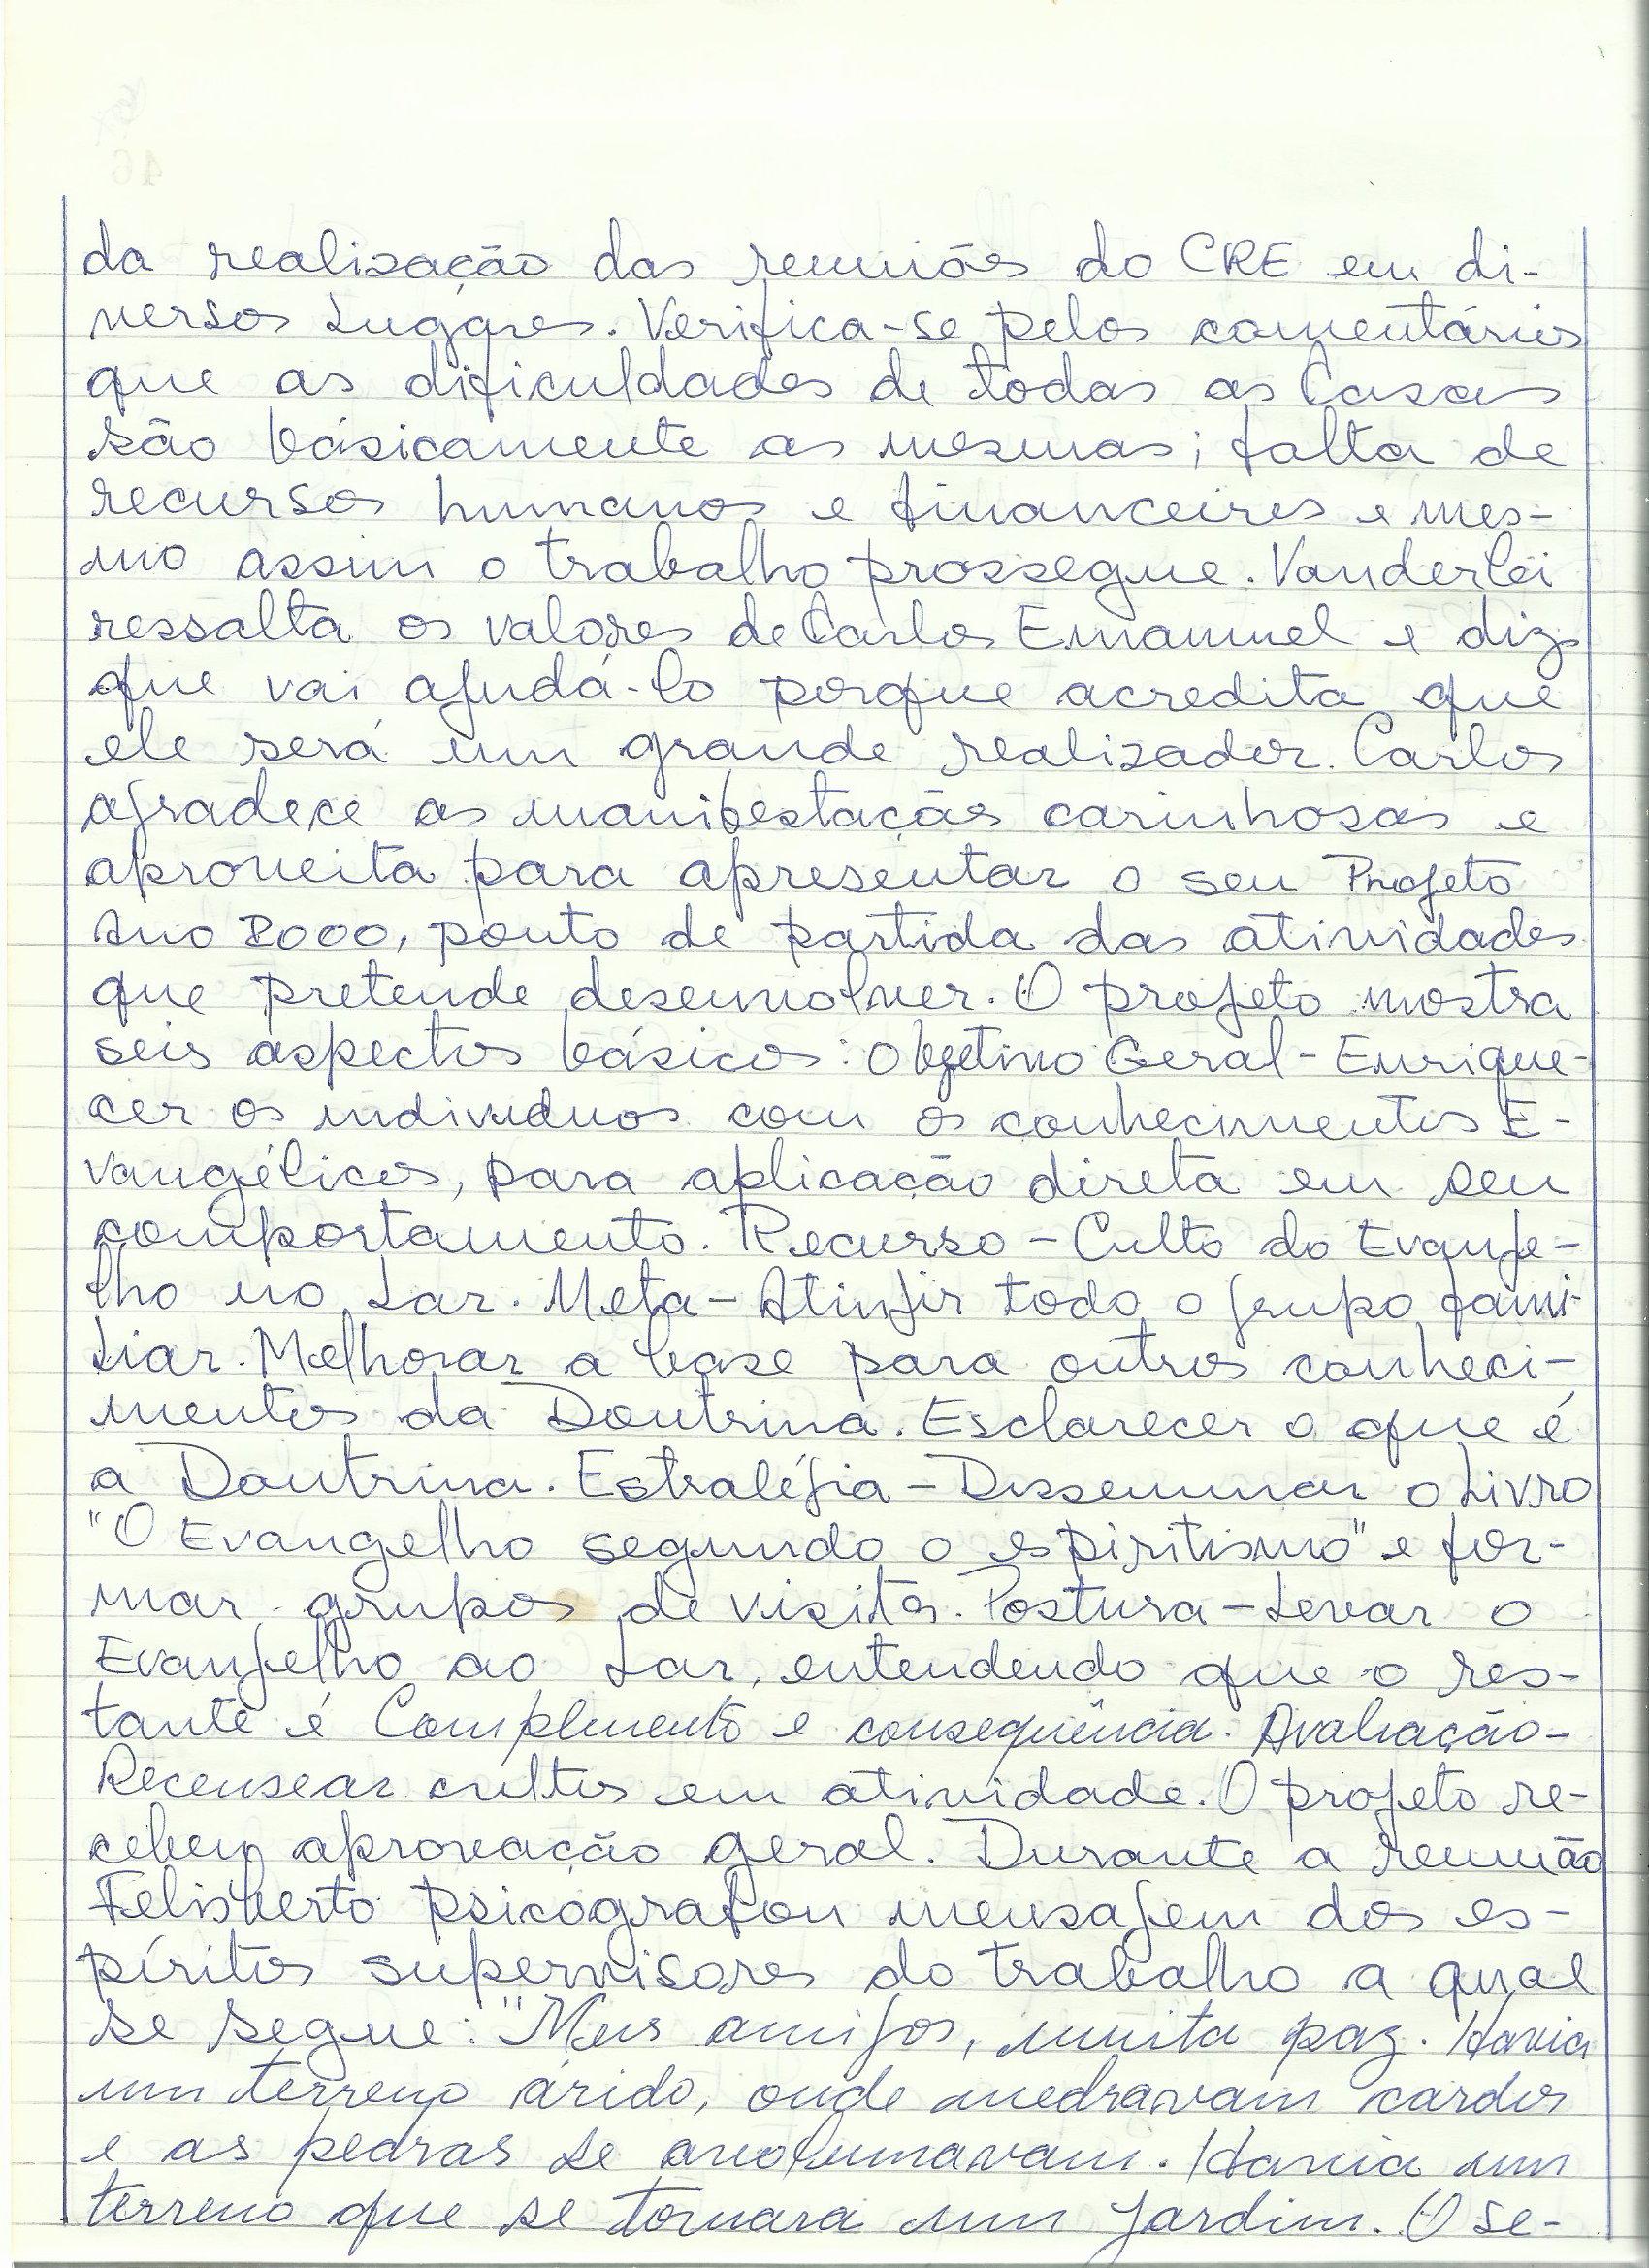 da realização das reuniões do CRE em di-
versos Lugares. Verifica-se pelos comentários
que as dificuldades de todas as Casas
são básicamente as mesmas; falta de
recursos humanos e financeiros e mes-
mo assim o trabalho prossegue. Vanderlei
ressalta os valores de Carlos Emanuel e diz
que vai ajudá-lo porque acredita que
ele será um grande realizador. Carlos
agradece as manifestações carinhosas e
aproveita para apresentar o seu Projeto
Ano 2000, ponto de partida das atividades
que pretende desenvolver. O projeto mostra
seis aspectos básicos: Objetivo Geral - Enrique-
cer os individuos com os conhecimentos E-
vangélicos, para aplicação direta em seu
comportamento. Recurso - Culto do Evange-
lho no Lar. Meta - Atingir todo o grupo fami-
liar. Melhorar a base para outros conheci-
mentos da Doutrina. Esclarecer o que é
a Doutrina. Estratégia - Disseminar o Livro
"O Evangelho segundo o espiritismo" e for-
mar grupos de visita. Postura - Levar o
Evangelho ao Lar, entendendo que o res-
tante é Complemento e conseqüência. Avaliação -
Recensear cultos em atividade. O projeto re-
cebeu aprovação geral. Durante a reunião
Felisberto psicografou mensagem dos es-
píritos supervisores do trabalho a qual
se segue: "Meus amigos, muita paz. Havia
um terreno árido, onde medravam cardos
e as pedras se avolumavam. Havia um
terreno que se tornara um jardim. O se-